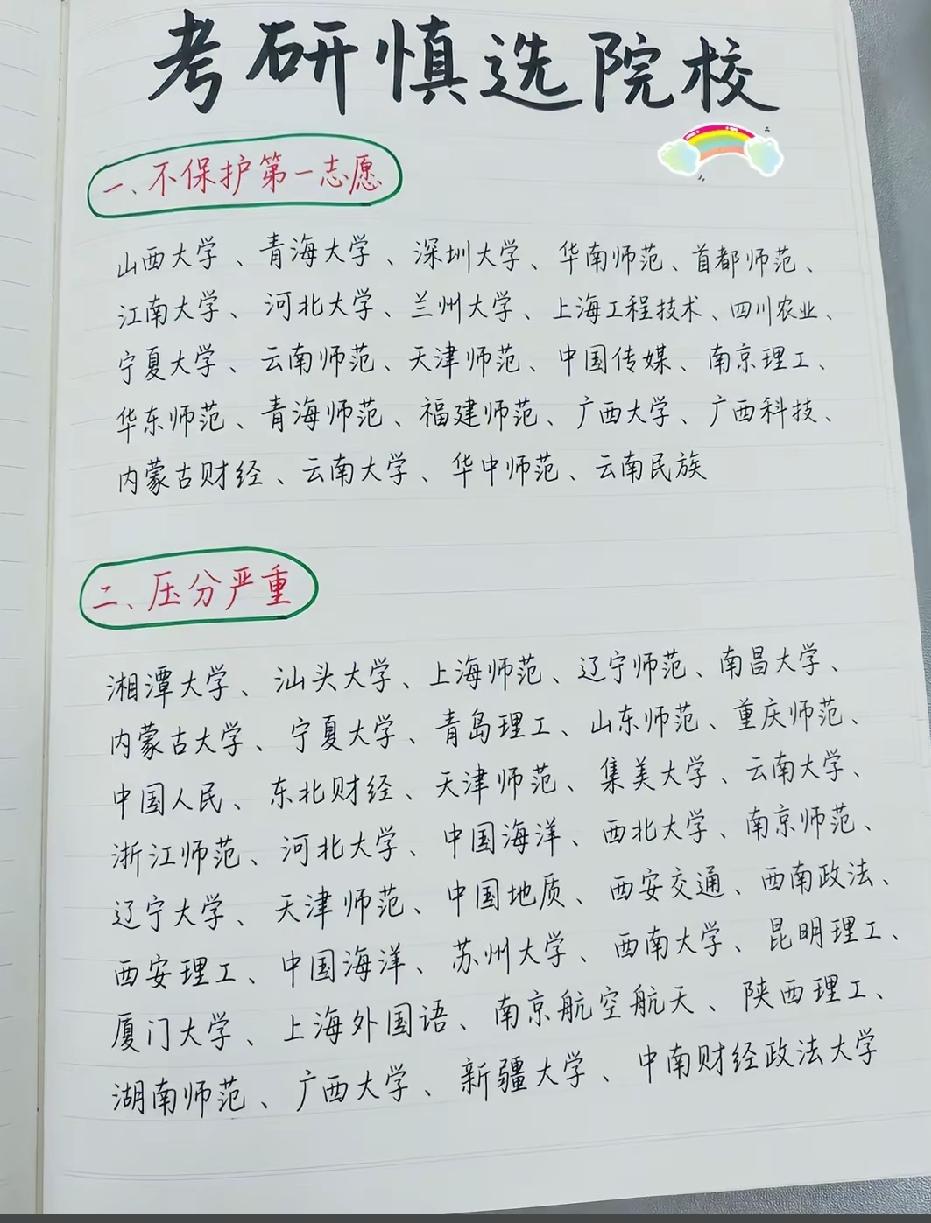 考研慎选院校
一、不保护第一志愿
山西大学、青海大学、深圳大学、华南师范、首都师范、
江南大学、河北大学、兰州大学、上海工程技术、四川农业、
宁夏大学、云南师范、天津师范、中国传媒、南京理工、
华东师范、青海师范、福建师范、广西大学、广西科技、
内蒙古财经、云南大学、华中师范、云南民族
二、压分严重
湘潭大学、汕头大学、上海师范、辽宁师范、南昌大学、
内蒙古大学、宁夏大学、青岛理工、山东师范、重庆师范、
中国人民、东北财经、天津师范、集美大学、云南大学、
浙江师范、河北大学、中国海洋、西北大学、南京师范、
辽宁大学、天津师范、中国地质、西安交通、西南政法、
西安理工、中国海洋、苏州大学、西南大学、昆明理工、
厦门大学、上海外国语、南京航空航天、陕西理工、
湖南师范、广西大学、新疆大学、中南财经政法大学